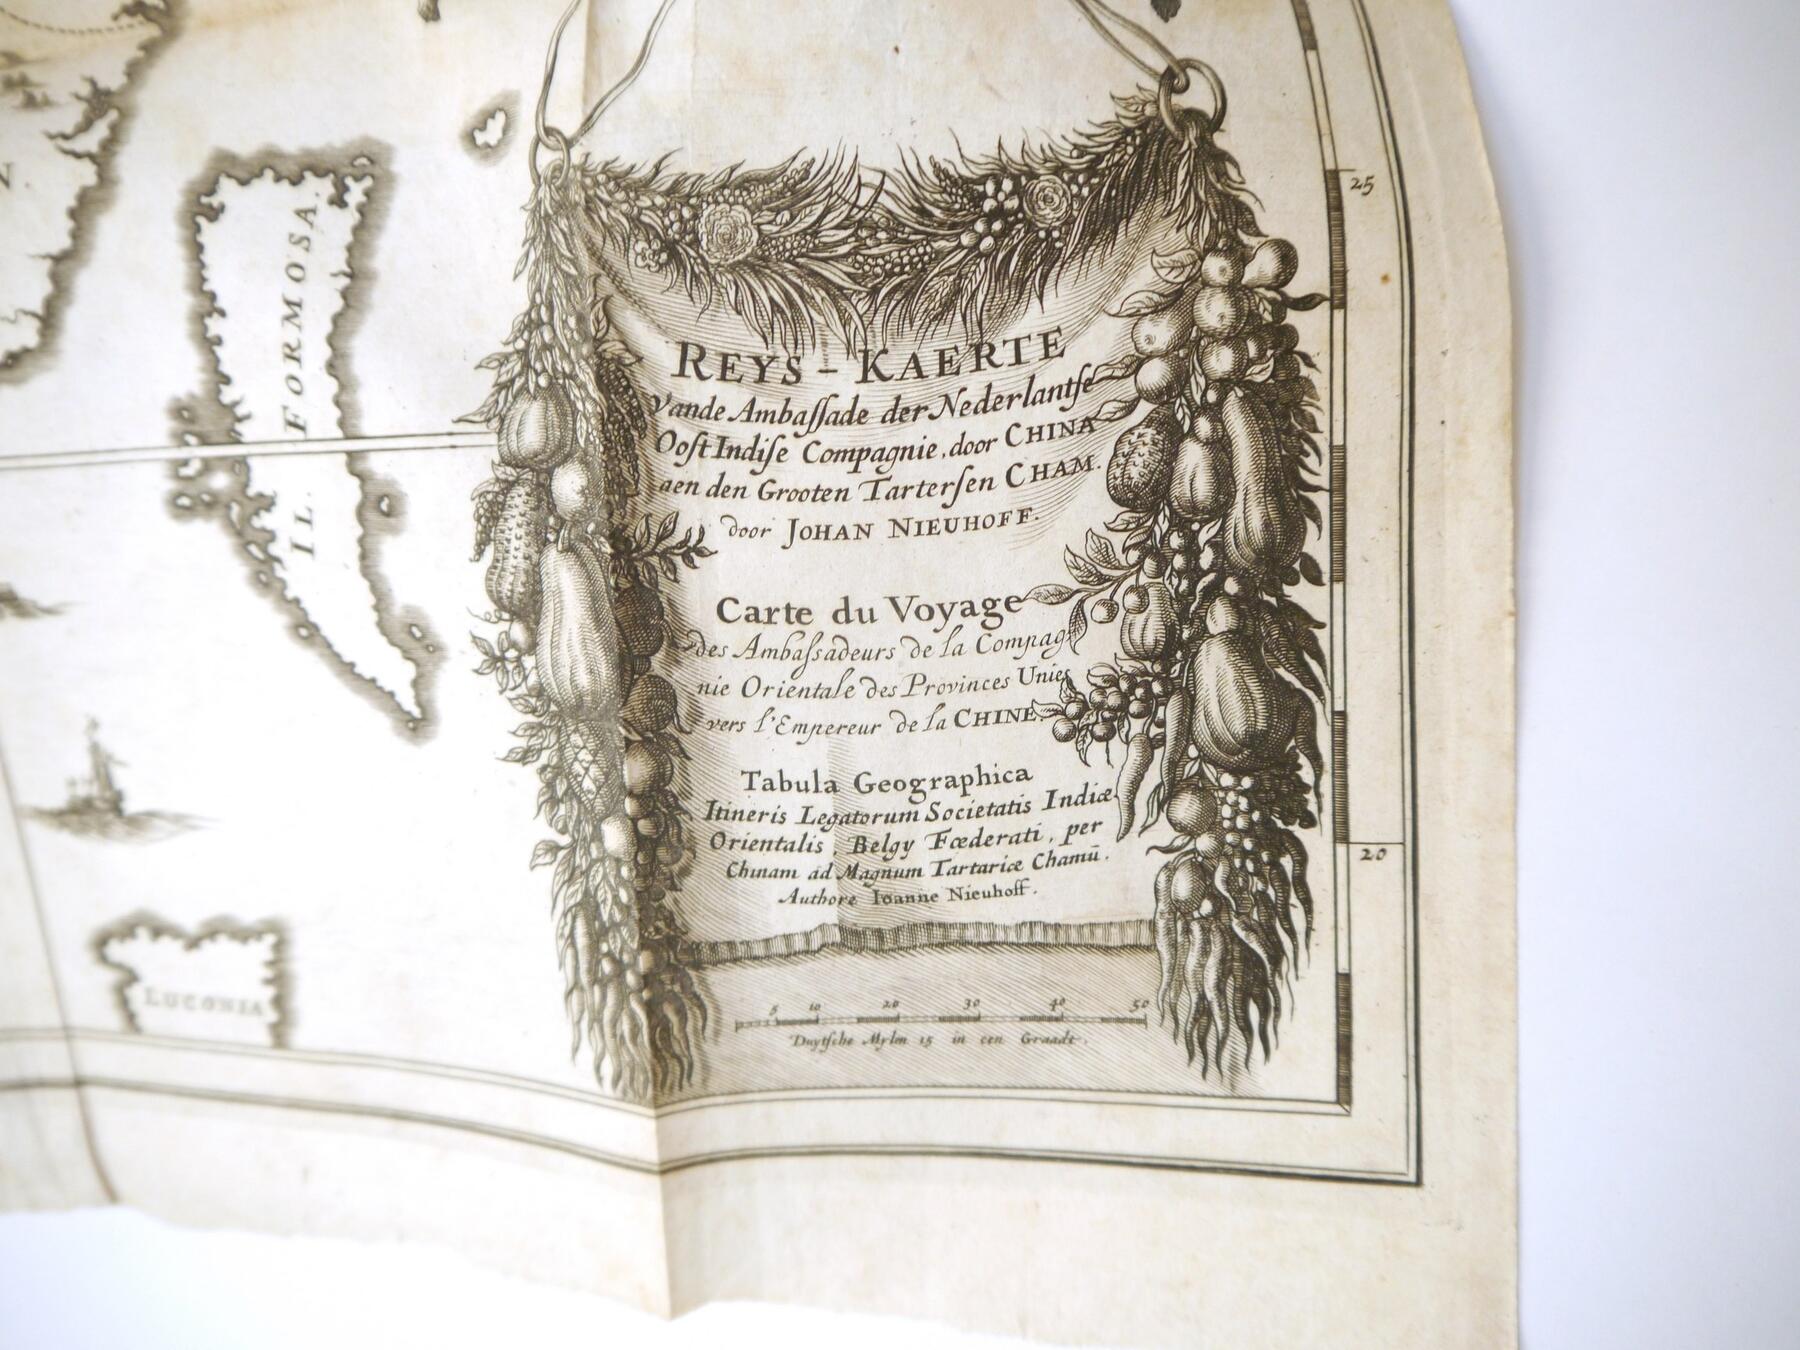 IL. FORMOSA.
25
REYS-KAERTE
Vande Ambaſſade der Nederlantſe
Ooſt Indiſe Compagnie, door CHINA
aen den Grooten Tarterſen CHAM.
door JOHAN NIEUHOFF.
Carte du Voyage
des Ambaſsadeurs de la Compag
nie Orientale des Provinces Unies
vers l'Empereur de la CHINE.
Tabula Geographica
Itineris Legatorum Societatis Indiæ
Orientalis, Belgy Fœderati, per
Chinam ad Magnum Tartariæ Chamū.
Authore Ioanne Nieuhoff.
20
LUCONIA
5 10 20 30 40 50
Duytſche Mylen 15 in een Graadt.